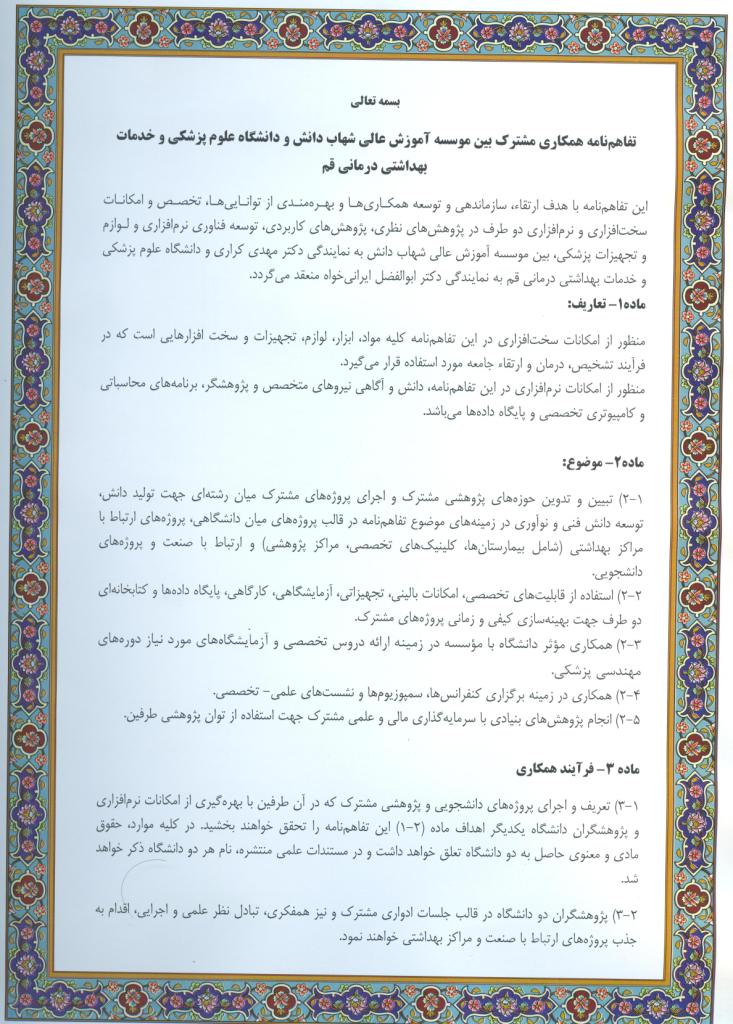 بسمه تعالی
تفاهم‌نامه همکاری مشترک بین موسسه آموزش عالی شهاب دانش و دانشگاه علوم پزشکی و خدمات
بهداشتی درمانی قم
این تفاهم‌نامه با هدف ارتقاء، سازماندهی و توسعه همکاری‌ها و بهره‌مندی از توانایی‌ها، تخصص و امکانات
سخت‌افزاری و نرم‌افزاری دو طرف در پژوهش‌های نظری، پژوهش‌های کاربردی، توسعه فناوری نرم‌افزاری و لوازم
و تجهیزات پزشکی، بین موسسه آموزش عالی شهاب دانش به نمایندگی دکتر مهدی کراری و دانشگاه علوم پزشکی
و خدمات بهداشتی درمانی قم به نمایندگی دکتر ابوالفضل ایرانی‌خواه منعقد می‌گردد.
ماده۱- تعاریف:
منظور از امکانات سخت‌افزاری در این تفاهم‌نامه کلیه مواد، ابزار، لوازم، تجهیزات و سخت افزارهایی است که در
فرآیند تشخیص، درمان و ارتقاء جامعه مورد استفاده قرار می‌گیرد.
منظور از امکانات نرم‌افزاری در این تفاهم‌نامه، دانش و آگاهی نیروهای متخصص و پژوهشگر، برنامه‌های محاسباتی
و کامپیوتری تخصصی و پایگاه داده‌ها می‌باشد.
ماده۲- موضوع:
۲-۱) تبیین و تدوین حوزه‌های پژوهشی مشترک و اجرای پروژه‌های مشترک میان رشته‌ای جهت تولید دانش،
توسعه دانش فنی و نوآوری در زمینه‌های موضوع تفاهم‌نامه در قالب پروژه‌های میان دانشگاهی، پروژه‌های ارتباط با
مراکز بهداشتی (شامل بیمارستان‌ها، کلینیک‌های تخصصی، مراکز پژوهشی) و ارتباط با صنعت و پروژه‌های
دانشجویی.
۲-۲) استفاده از قابلیت‌های تخصصی، امکانات بالینی، تجهیزاتی، آزمایشگاهی، کارگاهی، پایگاه داده‌ها و کتابخانه‌ای
دو طرف جهت بهینه‌سازی کیفی و زمانی پروژه‌های مشترک.
۲-۳) همکاری مؤثر دانشگاه با مؤسسه در زمینه ارائه دروس تخصصی و آزمایشگاه‌های مورد نیاز دوره‌های
مهندسی پزشکی.
۲-۴) همکاری در زمینه برگزاری کنفرانس‌ها، سمپوزیوم‌ها و نشست‌های علمی- تخصصی.
۲-۵) انجام پژوهش‌های بنیادی با سرمایه‌گذاری مالی و علمی مشترک جهت استفاده از توان پژوهشی طرفین.
ماده ۳- فرآیند همکاری
۳-۱) تعریف و اجرای پروژه‌های دانشجویی و پژوهشی مشترک که در آن طرفین با بهره‌گیری از امکانات نرم‌افزاری
و پژوهشگران دانشگاه یکدیگر اهداف ماده (۲-۱) این تفاهم‌نامه را تحقق خواهند بخشید. در کلیه موارد، حقوق
مادی و معنوی حاصل به دو دانشگاه تعلق خواهد داشت و در مستندات علمی منتشره، نام هر دو دانشگاه ذکر خواهد
شد.
۳-۲) پژوهشگران دو دانشگاه در قالب جلسات ادواری مشترک و نیز همفکری، تبادل نظر علمی و اجرایی، اقدام به
جذب پروژه‌های ارتباط با صنعت و مراکز بهداشتی خواهند نمود.